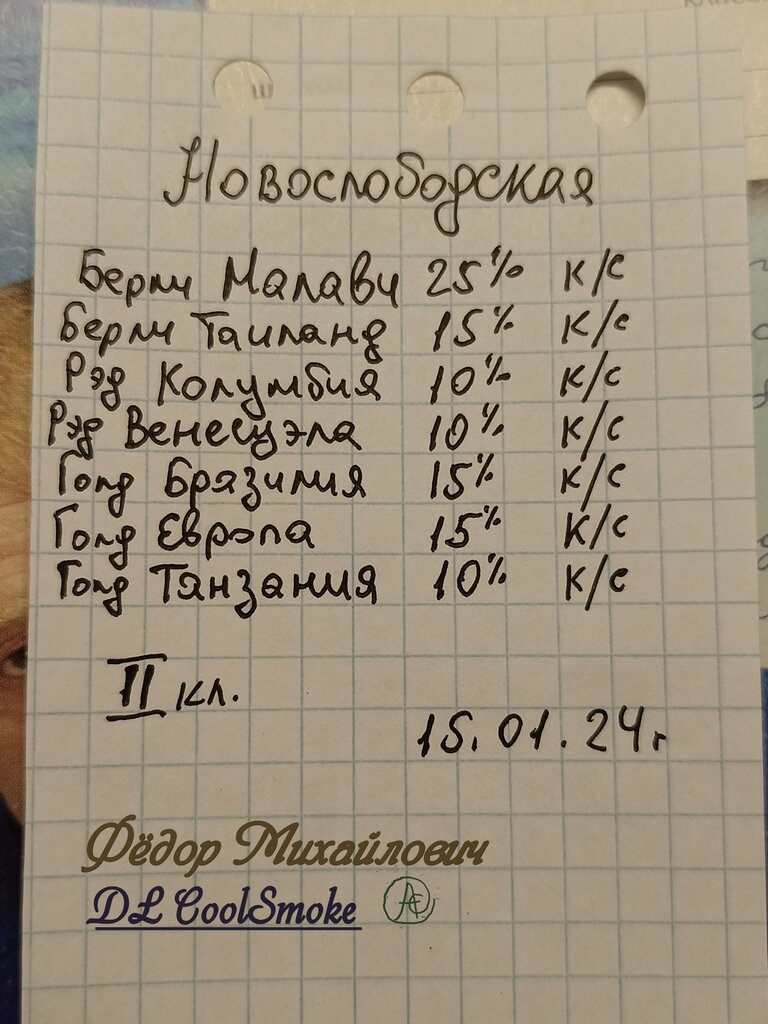 Новослободская
Берли Малави 25% к/с
Берли Таиланд 15% к/с
Рэд Колумбия 10% к/с
Рэд Венесуэла 10% к/с
Голд Бразилия 15% к/с
Голд Европа 15% к/с
Голд Танзания 10% к/с
II кл.
15.01.24г
Фёдор Михайлович
DL CoolSmoke